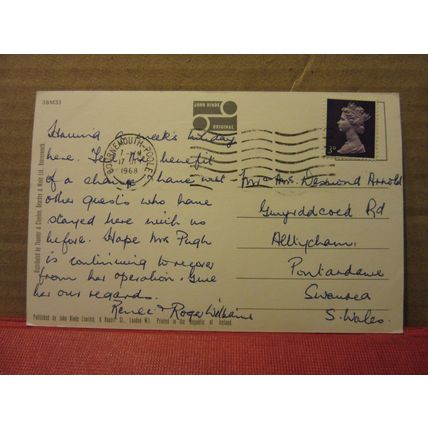 38M33
JOHN HINDE
ORIGINAL
BOURNEMOUTH-POOLE
1968
3D
Having a week's holiday
here. Feel the benefit
of a change. Have met
other guests who have
stayed here with us
before. Hope Mrs Pugh
is continuing to recover
from her operation. Give
her our regards.
Renee & Roger Williams
Mr & Mrs. Desmond Arnold
Gwyriddcoed Rd
Alltycham
Pontardawe
Swansea
S. Wales.
Distributed by Thunder & Clayden, Dexster & Wade Ltd. Bournemouth
Published by John Hinde Limited, St., London W1. Printed in the Republic of Ireland